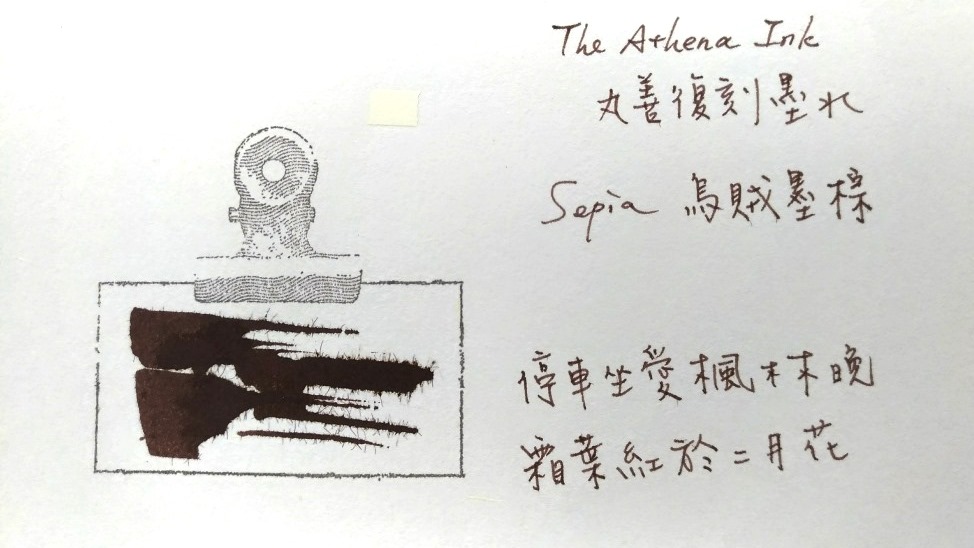 The Athena Ink
丸善復刻墨水
Sepia 烏賊墨棕
停車坐愛楓林晚
霜葉紅於二月花